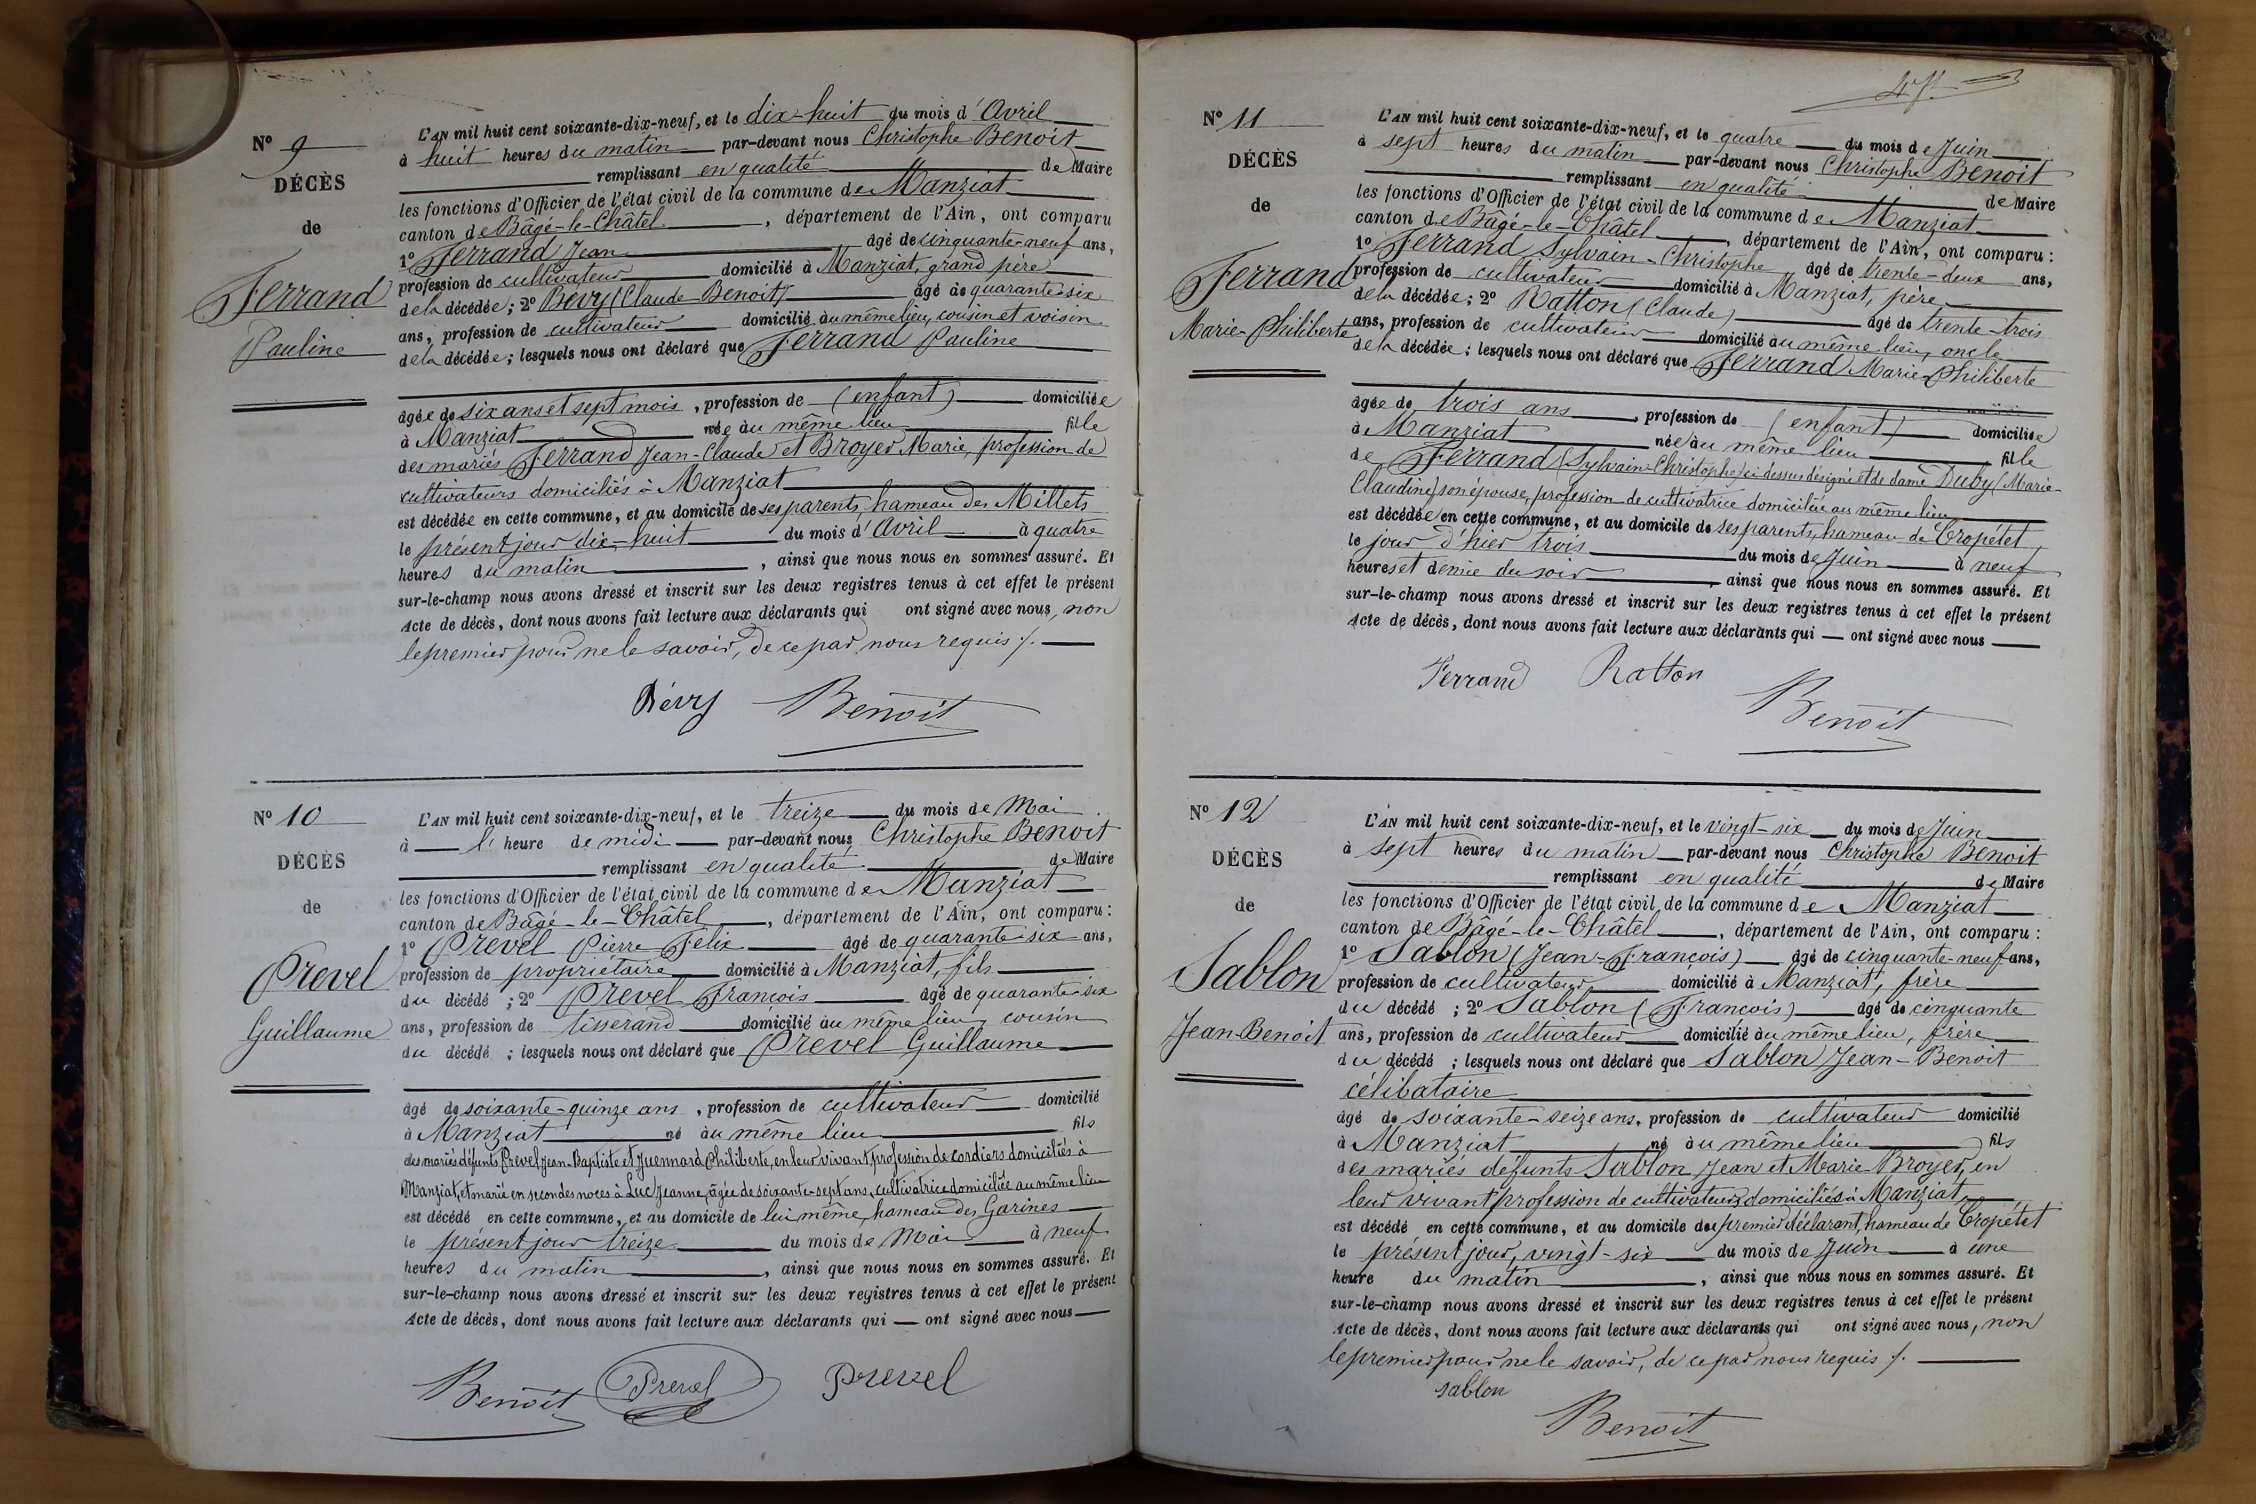 Nº 9
DÉCÈS
de
Ferrand
Pauline
L'AN mil huit cent soixante-dix-neuf, et le dix-huit du mois d'Avril
à huit heures du matin par-devant nous Christophe Benoit
remplissant en qualité de Maire
les fonctions d'Officier de l'état civil de la commune de Manziat
canton de Bâgé-le-Châtel, département de l'Ain, ont comparu
1º Ferrand Jean âgé de cinquante-neuf ans,
profession de cultivateur domicilié à Manziat, grand père
de la décédée; 2º Bévy (Claude-Benoit) âgé de quarante-six
ans, profession de cultivateur domicilié au même lieu, cousin et voisin
de la décédée; lesquels nous ont déclaré que Ferrand Pauline
âgée de six ans et sept mois, profession de (enfant) domiciliée
à Manziat née au même lieu fille
des mariés Ferrand Jean-Claude et Broyer Marie, profession de
cultivateurs domiciliés à Manziat
est décédée en cette commune, et au domicile de ses parents, hameau des Millets
le présent jour dix-huit du mois d'Avril à quatre
heures du matin, ainsi que nous nous en sommes assuré. Et
sur-le-champ nous avons dressé et inscrit sur les deux registres tenus à cet effet le présent
Acte de décès, dont nous avons fait lecture aux déclarants qui ont signé avec nous, non
le premier pour ne le savoir, de ce par nous requis /.
Bévy Benoit
Nº 10
DÉCÈS
de
Prevel
Guillaume
L'AN mil huit cent soixante-dix-neuf, et le treize du mois de Mai
à l'heure de midi par-devant nous Christophe Benoit
remplissant en qualité de Maire
les fonctions d'Officier de l'état civil de la commune de Manziat
canton de Bâgé-le-Châtel, département de l'Ain, ont comparu :
1º Prevel Pierre Félix âgé de quarante-six ans,
profession de propriétaire domicilié à Manziat, fils
du décédé ; 2º Prevel François âgé de quarante-six
ans, profession de tisserand domicilié au même lieu, cousin
du décédé ; lesquels nous ont déclaré que Prevel Guillaume
âgé de soixante-quinze ans, profession de cultivateur domicilié
à Manziat né au même lieu fils
des mariés défunts Prevel Jean-Baptiste et Juennard Philiberte, en leur vivant profession de cordiers domiciliés à
Manziat, et marié en secondes noces à Luc Jeanne, âgée de soixante-sept ans, cultivatrice domiciliée au même lieu
est décédé en cette commune, et au domicile de lui même, hameau des Garines
le présent jour treize du mois de Mai à neuf
heures du matin, ainsi que nous nous en sommes assuré. Et
sur-le-champ nous avons dressé et inscrit sur les deux registres tenus à cet effet le présent
Acte de décès, dont nous avons fait lecture aux déclarants qui — ont signé avec nous
Benoit Prevel Prevel
Nº 11
DÉCÈS
de
Ferrand
Marie-Philiberte
L'AN mil huit cent soixante-dix-neuf, et le quatre du mois de Juin
à sept heures du matin par-devant nous Christophe Benoit
remplissant en qualité de Maire
les fonctions d'Officier de l'état civil de la commune de Manziat
canton de Bâgé-le-Châtel, département de l'Ain, ont comparu :
1º Ferrand Sylvain-Christophe âgé de trente-deux ans,
profession de cultivateur domicilié à Manziat, père
de la décédée; 2º Ratton (Claude) âgé de trente-trois
ans, profession de cultivateur domicilié au même lieu, oncle
de la décédée ; lesquels nous ont déclaré que Ferrand Marie-Philiberte
âgée de trois ans, profession de (enfant) domiciliée
à Manziat née au même lieu fille
de Ferrand (Sylvain-Christophe) ci dessus désigné et de dame Duby (Marie-
Claudine) son épouse, profession de cultivatrice domiciliée au même lieu
est décédée en cette commune, et au domicile de ses parents, hameau de Cropétet
le jour d'hier trois du mois de Juin à neuf
heures et demie du soir, ainsi que nous nous en sommes assuré. Et
sur-le-champ nous avons dressé et inscrit sur les deux registres tenus à cet effet le présent
Acte de décès, dont nous avons fait lecture aux déclarants qui — ont signé avec nous
Ferrand Ratton
Benoit
Nº 12
DÉCÈS
de
Sablon
Jean-Benoit
L'AN mil huit cent soixante-dix-neuf, et le vingt-six du mois de Juin
à sept heures du matin par-devant nous Christophe Benoit
remplissant en qualité de Maire
les fonctions d'Officier de l'état civil de la commune de Manziat
canton de Bâgé-le-Châtel, département de l'Ain, ont comparu :
1º Sablon (Jean-François) âgé de cinquante-neuf ans,
profession de cultivateur domicilié à Manziat, frère
du décédé ; 2º Sablon (François) âgé de cinquante
ans, profession de cultivateur domicilié au même lieu, frère
du décédé ; lesquels nous ont déclaré que Sablon Jean-Benoit
célibataire
âgé de soixante-seize ans, profession de cultivateur domicilié
à Manziat né au même lieu fils
des mariés défunts Sablon Jean et Marie Broyer, en
leur vivant profession de cultivateurs domiciliés à Manziat
est décédé en cette commune, et au domicile du premier déclarant, hameau de Cropétet
le présent jour, vingt-six du mois de Juin à une
heure du matin, ainsi que nous nous en sommes assuré. Et
sur-le-champ nous avons dressé et inscrit sur les deux registres tenus à cet effet le présent
Acte de décès, dont nous avons fait lecture aux déclarants qui ont signé avec nous, non
le premier pour ne le savoir, de ce par nous requis /.
Sablon
Benoit